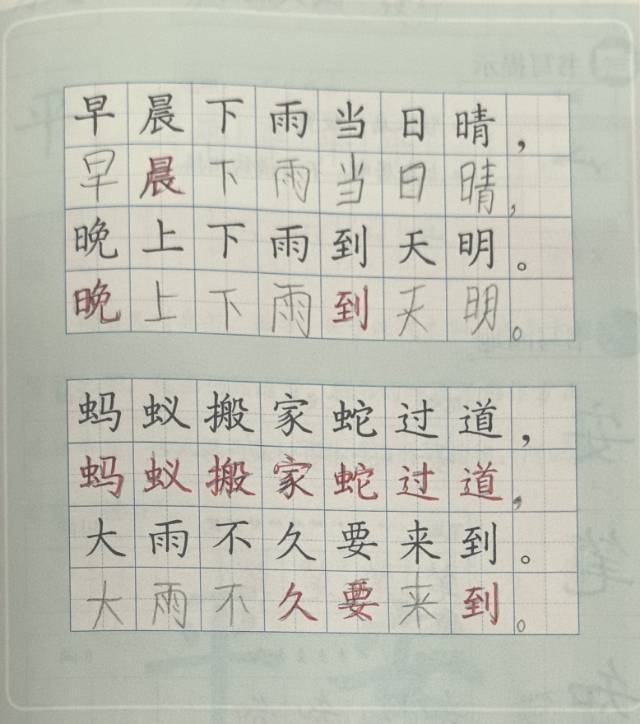 早晨下雨当日晴，
早晨下雨当日晴，
晚上下雨到天明。
晚上下雨到天明。
蚂蚁搬家蛇过道，
蚂蚁搬家蛇过道，
大雨不久要来到。
大雨不久要来到。